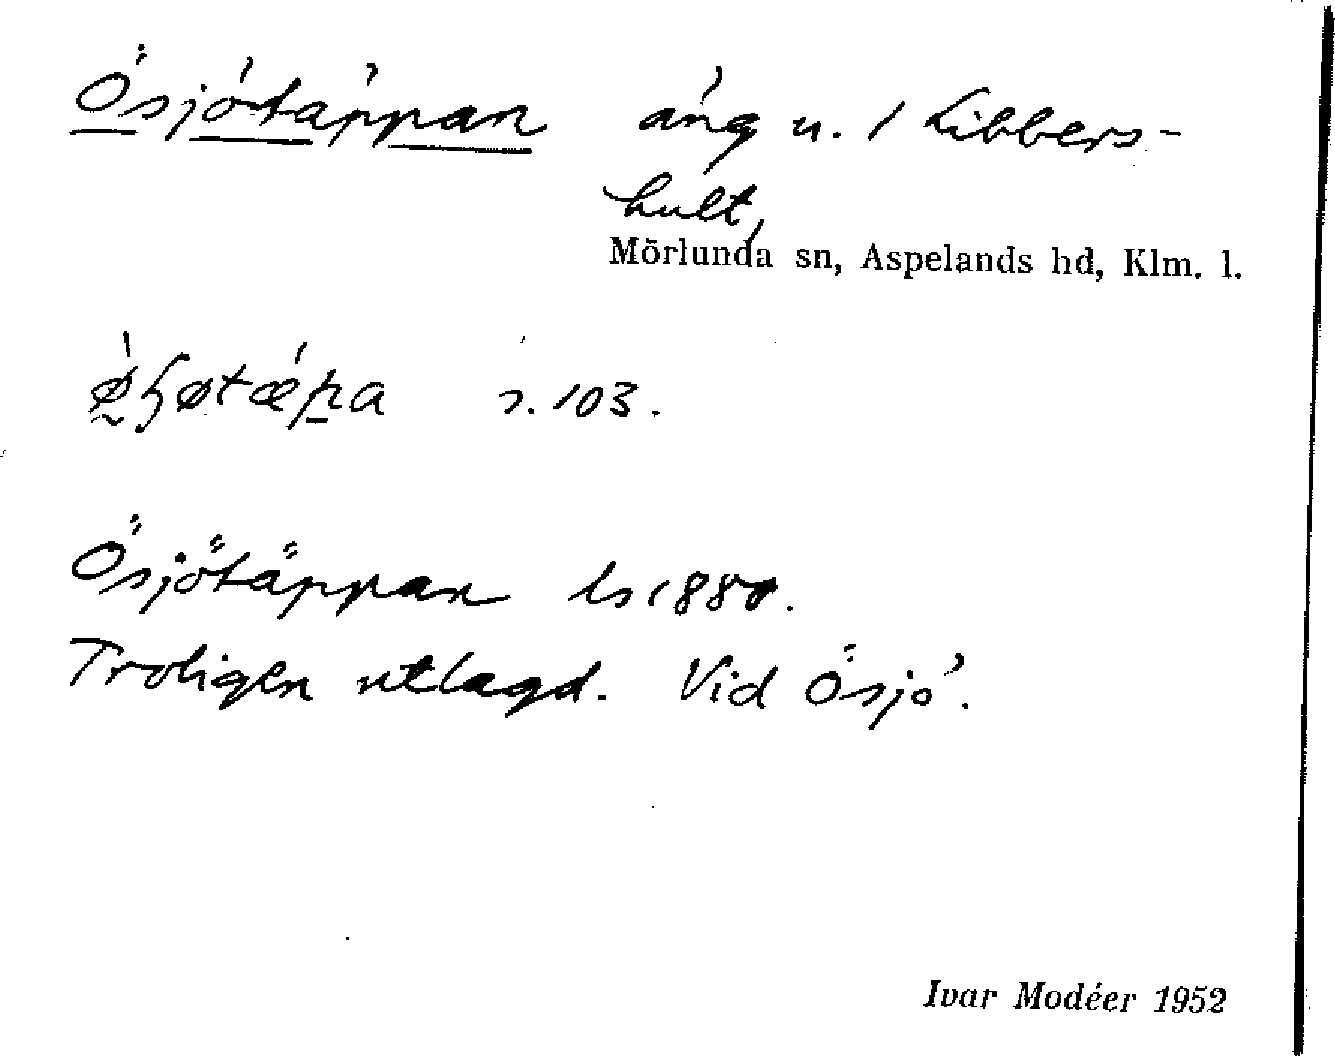 Ösjötäppan äng u. 1 Libbers-
hult,
Mörlunda sn, Aspelands hd, Klm. l.
s. 103.
Ösjötäppan ls 1880.
Troligen utlagd. Vid Ösjö.
Ivar Modéer 1952